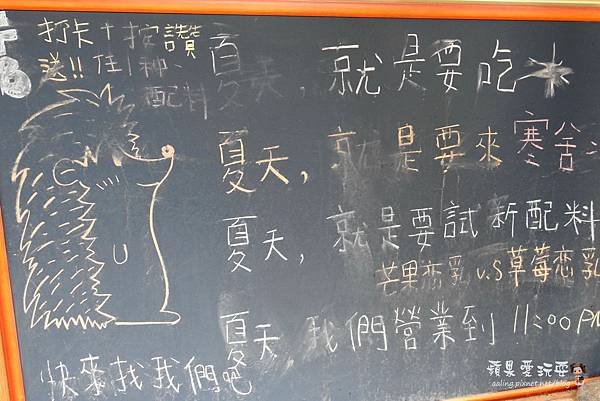 打卡+按讚
送!!任1種、
配料
夏天,就是要吃
夏天,就是要來寒舍
夏天,就是要試新配料
芒果恋乳 v.s 草莓恋乳
夏天,我們營業到 11:00 PM
快來找我們吧
蘋果愛玩耍
aaling.pixnet.net/blog